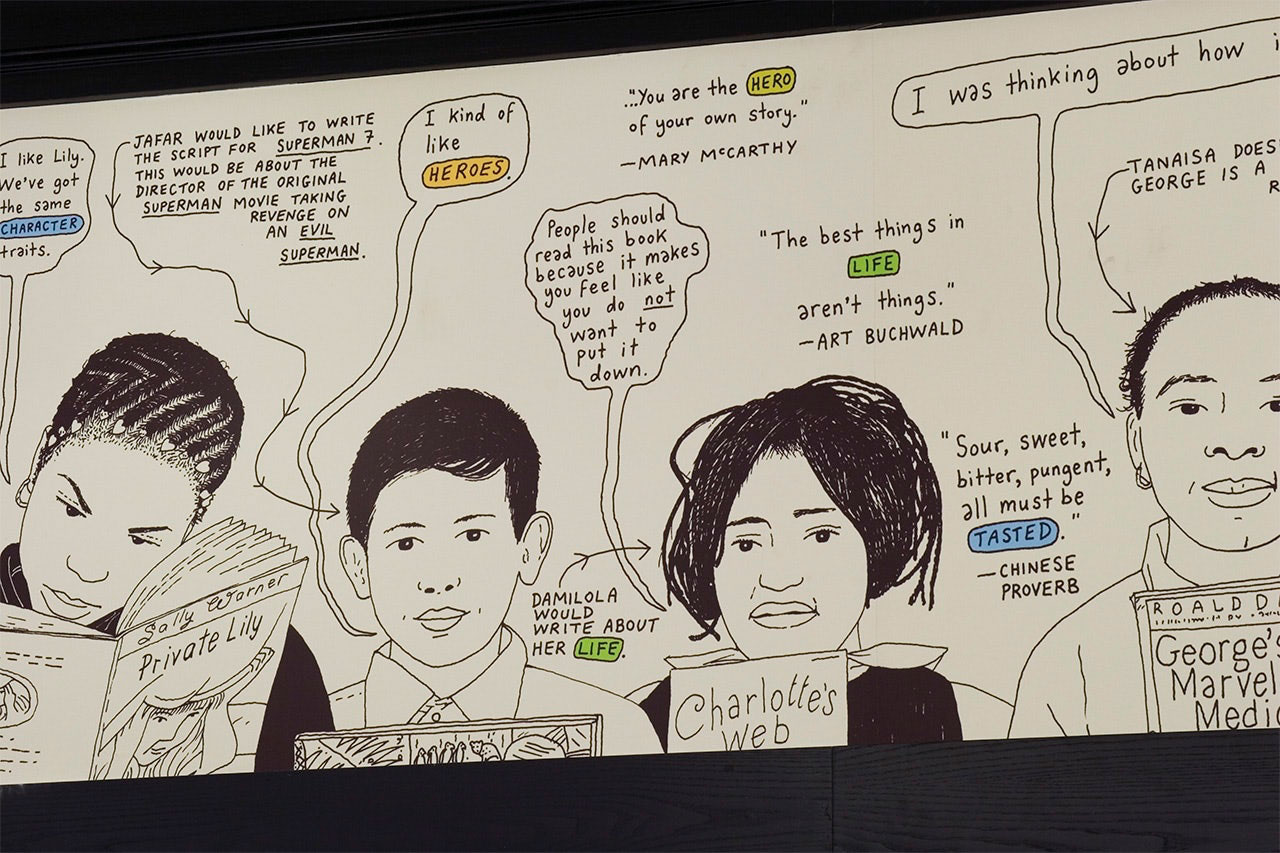 I like Lily.
We've got
the same
CHARACTER
traits.
JAFAR WOULD LIKE TO WRITE
THE SCRIPT FOR SUPERMAN 7.
THIS WOULD BE ABOUT THE
DIRECTOR OF THE ORIGINAL
SUPERMAN MOVIE TAKING
REVENGE ON
AN EVIL
SUPERMAN.
I kind of
like
HEROES.
"...You are the HERO
of your own story."
—MARY McCARTHY
People should
read this book
because it makes
you feel like
you do not
want to
put it
down.
"The best things in
LIFE
aren't things."
—ART BUCHWALD
I was thinking about how
TANAISA DOES
GEORGE IS A
"Sour, sweet,
bitter, pungent,
all must be
TASTED."
—CHINESE
PROVERB
DAMILOLA
WOULD
WRITE ABOUT
HER LIFE.
Sally Warner
Private Lily
Charlotte's
Web
ROALD D
George's
Marvel
Medic